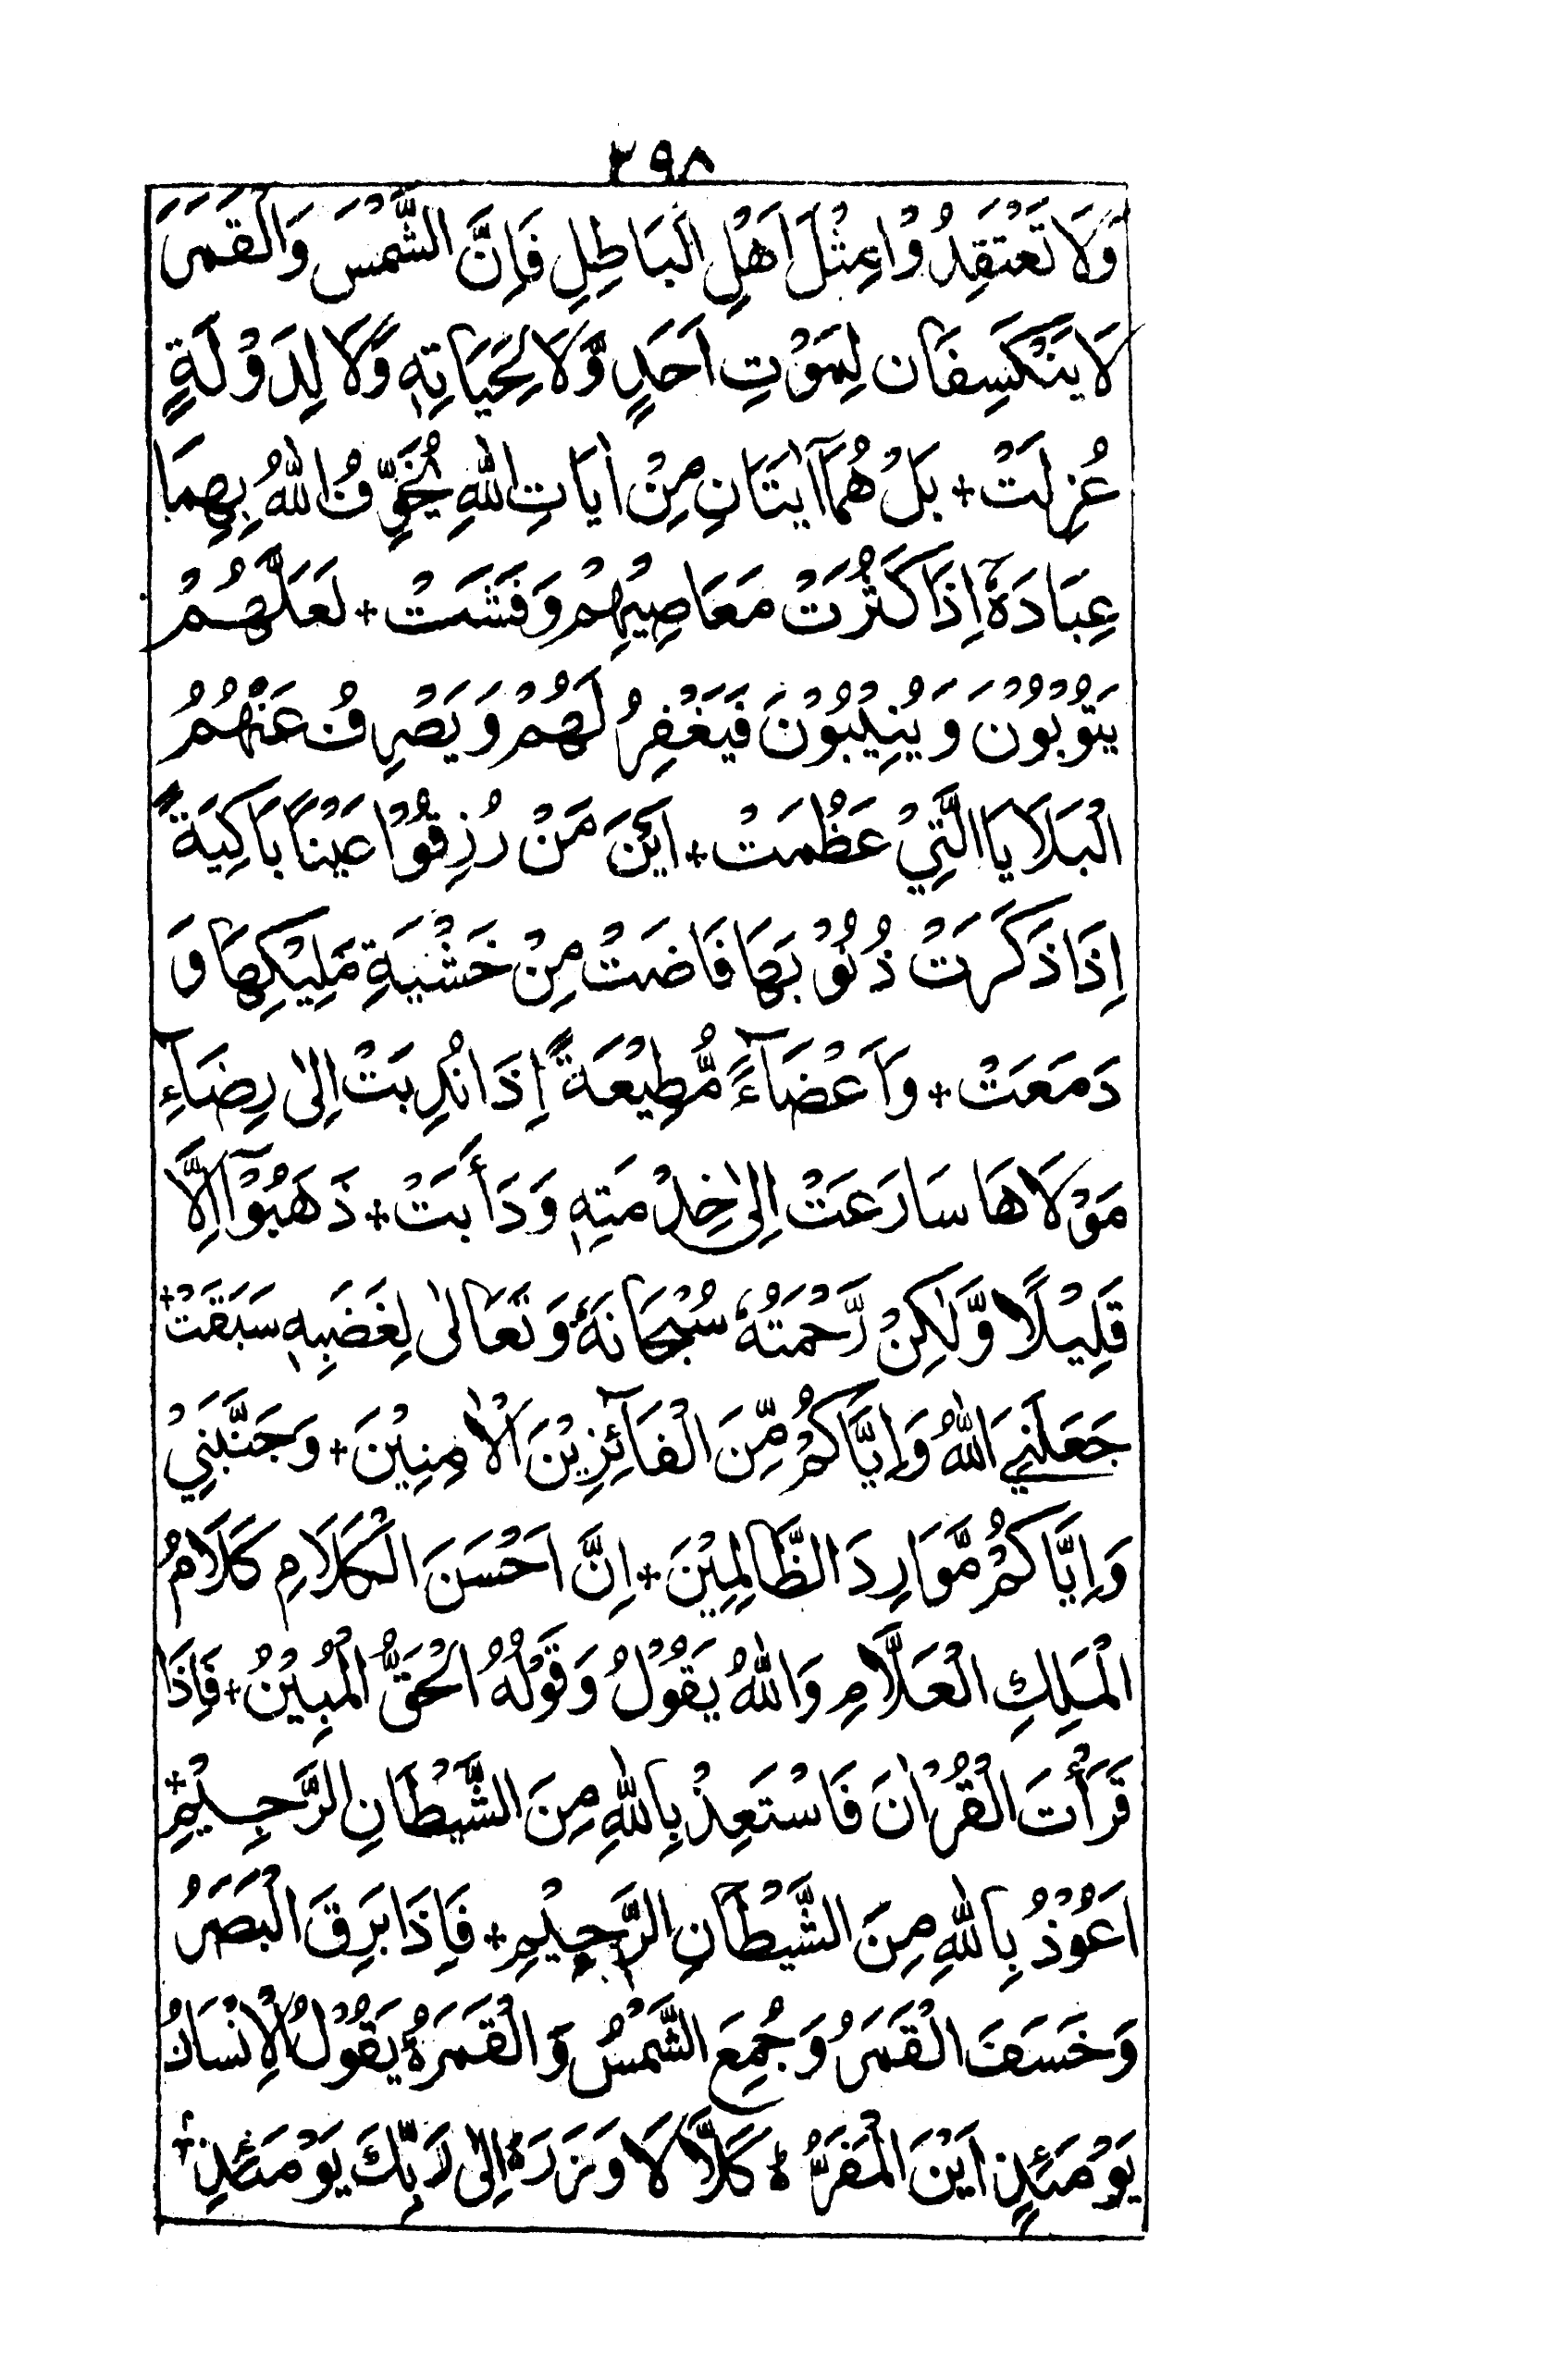 ٢٩٨
وَلَا تَعْتَقِدُوْا مِثْلَ اَهْلِ الْبَاطِلِ فَاِنَّ الشَّمْسَ وَالْقَمَرَ
لَا يَنْكَسِفَانِ لِمَوْتِ اَحَدٍ وَّلَا لِحَيَاتِهٖ وَلَا لِدَوْلَةٍ
عُزِلَتْ + بَلْ هُمَآ اٰيَتَانِ مِنْ اٰيَاتِ اللّٰهِ يُخَوِّفُ اللّٰهُ بِهِمَا
عِبَادَهٗٓ اِذَا كَثُرَتْ مَعَاصِيْهِمْ وَفَشَتْ + لَعَلَّهُمْ
يَتُوْبُوْنَ وَيُنِيْبُوْنَ فَيَغْفِرُ لَهُمْ وَيَصْرِفُ عَنْهُمُ
الْبَلَايَا الَّتِيْ عَظُمَتْ + اَيْنَ مَنْ رُزِقُوْا عَيْنًا بَاكِيَةً
اِذَا ذَكَرَتْ ذُنُوْبَهَا فَاضَتْ مِنْ خَشْيَةِ مَلِيْكِهَا وَ
دَمَعَتْ + وَاَعْضَآءً مُّطِيْعَةً اِذَا نُدِبَتْ اِلٰى رِضَآءِ
مَوْلَاهَا سَارَعَتْ اِلٰى خِدْمَتِهٖ وَدَأَبَتْ + ذَهَبُوْٓا اِلَّا
قَلِيْلًا وَّلٰكِنْ رَّحْمَتُهٗ سُبْحَانَهٗ وَتَعَالٰى لِغَضَبِهٖ سَبَقَتْ +
جَعَلَنِيَ اللّٰهُ وَاِيَّاكُمْ مِّنَ الْفَآئِزِيْنَ الْاٰمِنِيْنَ + وَجَنَّبَنِيْ
وَاِيَّاكُمْ مَّوَارِدَ الظَّالِمِيْنَ + اِنَّ اَحْسَنَ الْكَلَامِ كَلَامُ
الْمَلِكِ الْعَلَّامِ وَاللّٰهُ يَقُوْلُ وَقَوْلُهُ الْحَقُّ الْمُبِيْنُ + فَاِذَا
قَرَأْتَ الْقُرْاٰنَ فَاسْتَعِذْ بِاللّٰهِ مِنَ الشَّيْطَانِ الرَّجِيْمِ +
اَعُوْذُ بِاللّٰهِ مِنَ الشَّيْطَانِ الرَّجِيْمِ + فَاِذَا بَرِقَ الْبَصَرُ
وَخَسَفَ الْقَمَرُ وَجُمِعَ الشَّمْسُ وَالْقَمَرُ يَقُوْلُ الْاِنْسَانُ
يَوْمَئِذٍ اَيْنَ الْمَفَرُّ ط كَلَّا لَا وَزَرَ ط اِلٰى رَبِّكَ يَوْمَئِذِ +